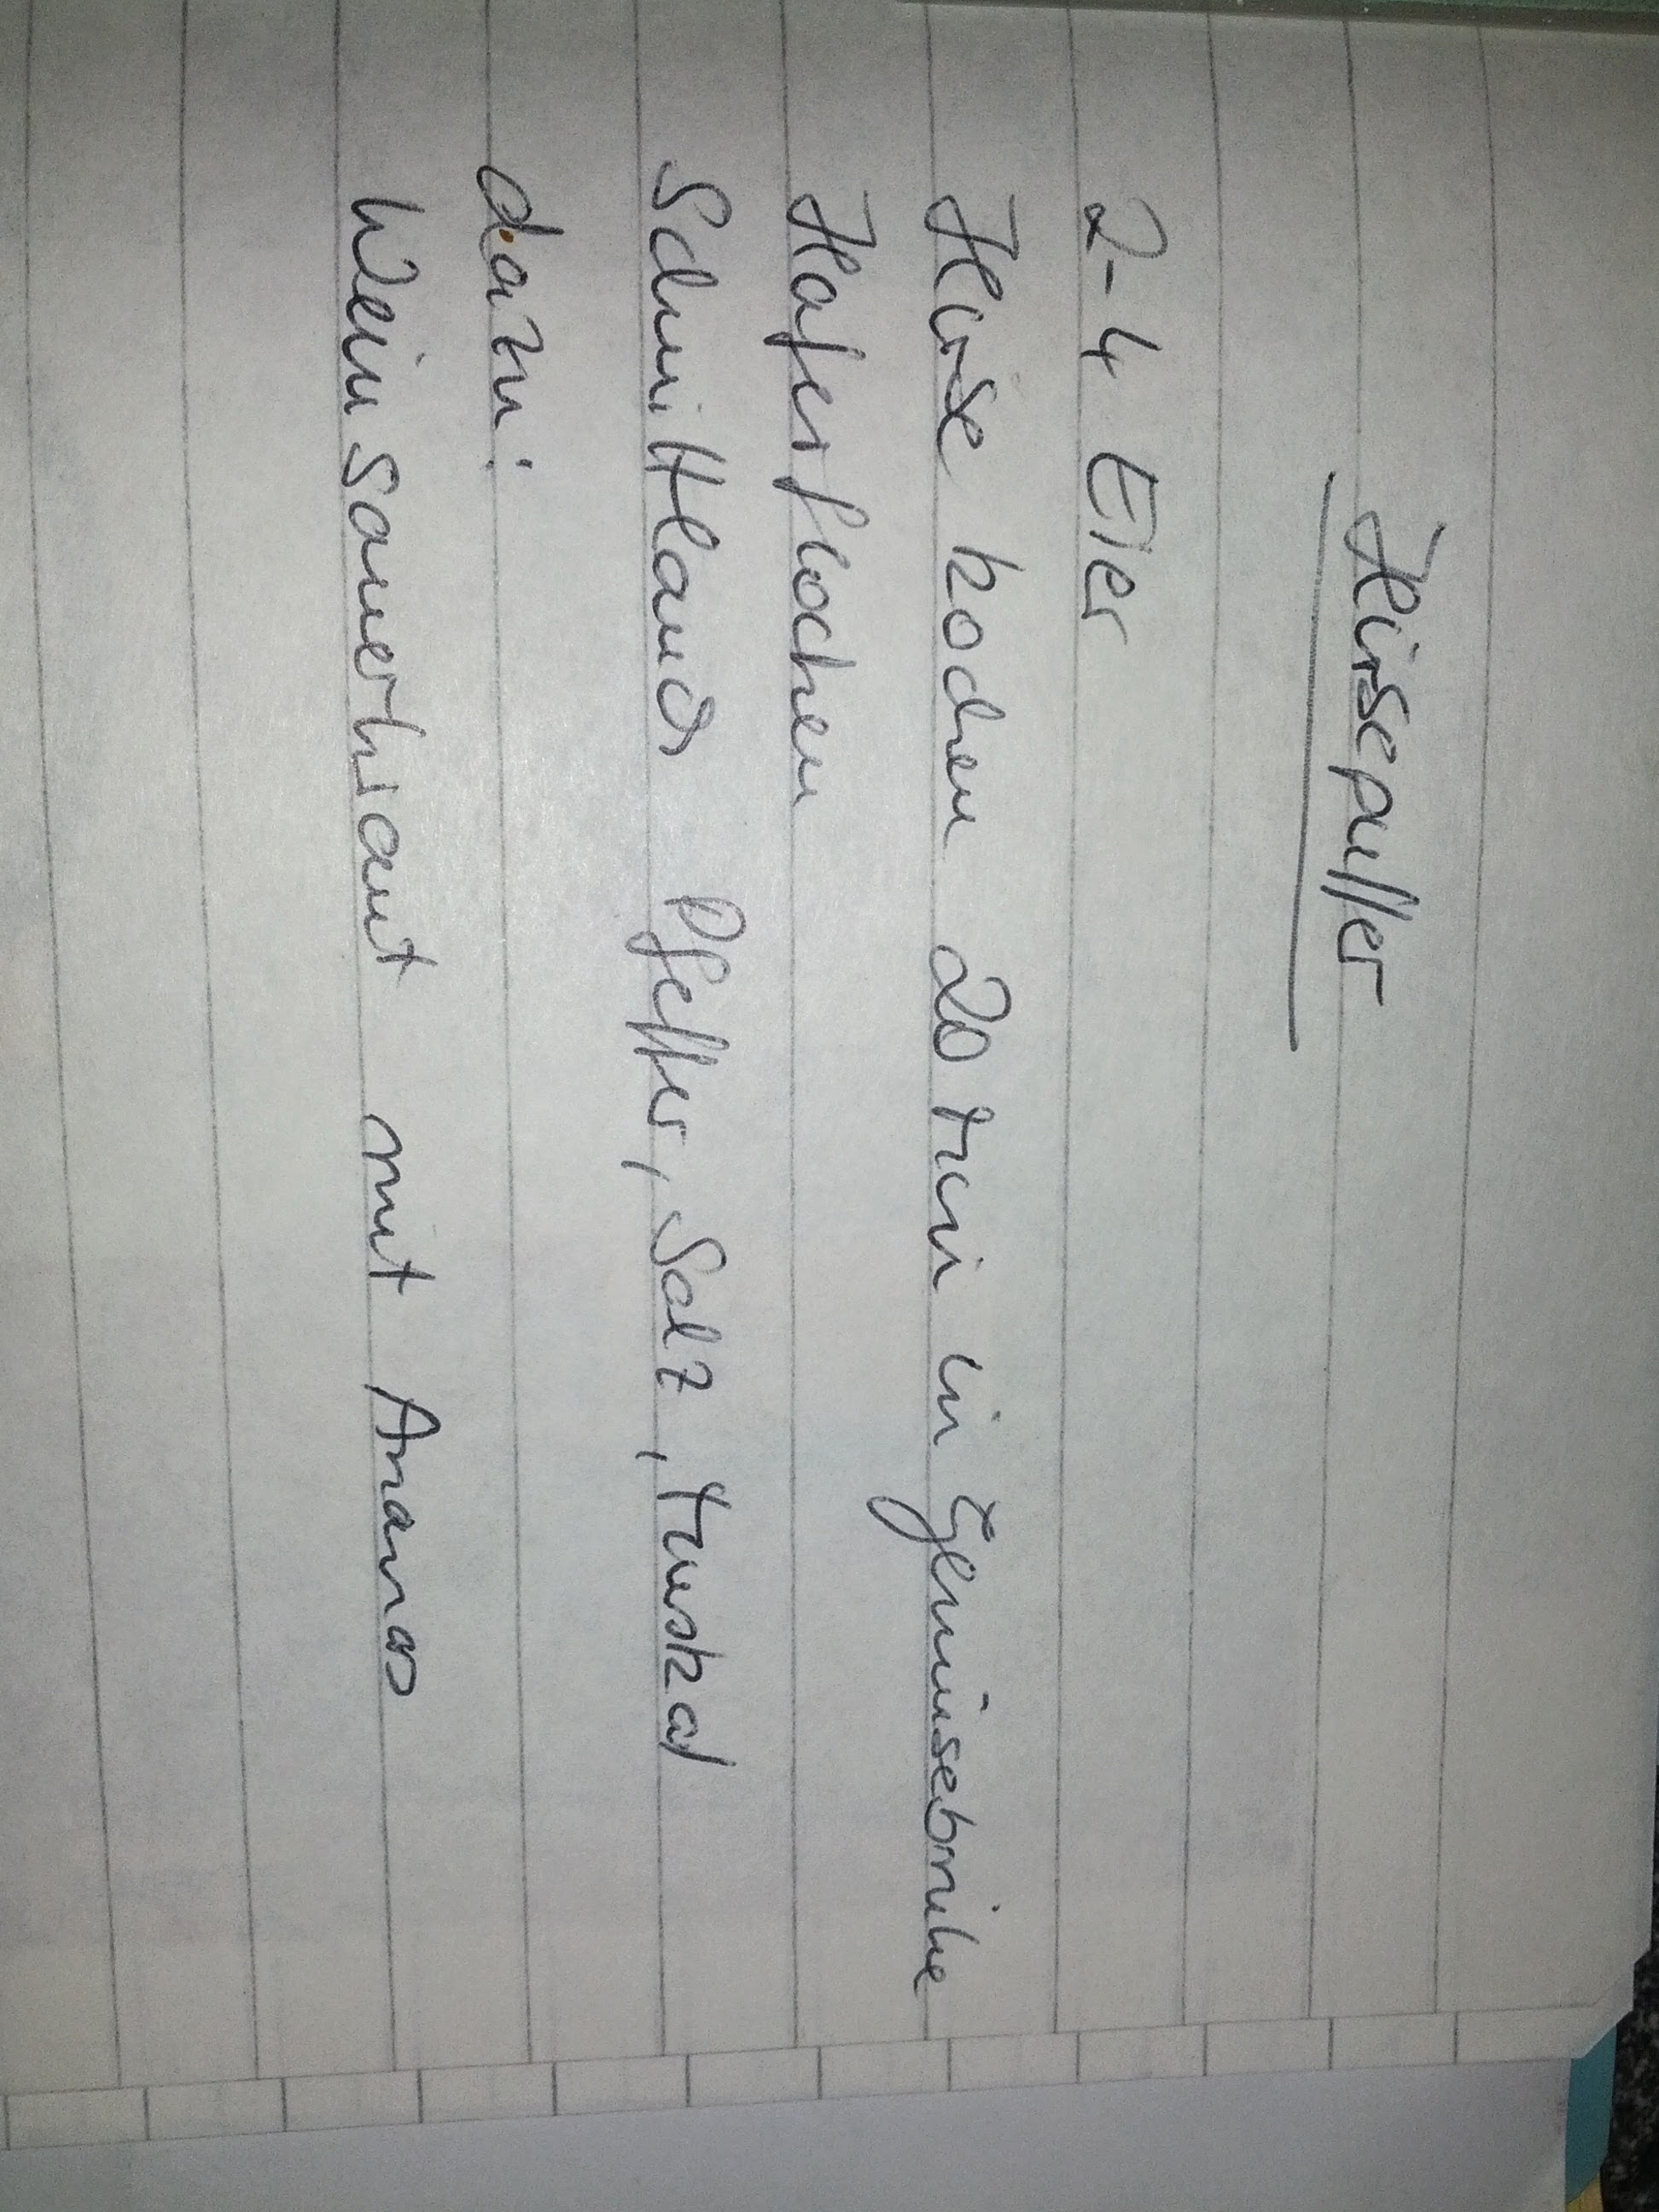 Hirsepuffer
2-4 Eier
Hirse kochen 20 Min in Gemüsebrühe
Haferflocken
Schnittlauch Pfeffer, Salz, Muskat
dazu:
Weinsauerkraut mit Ananas